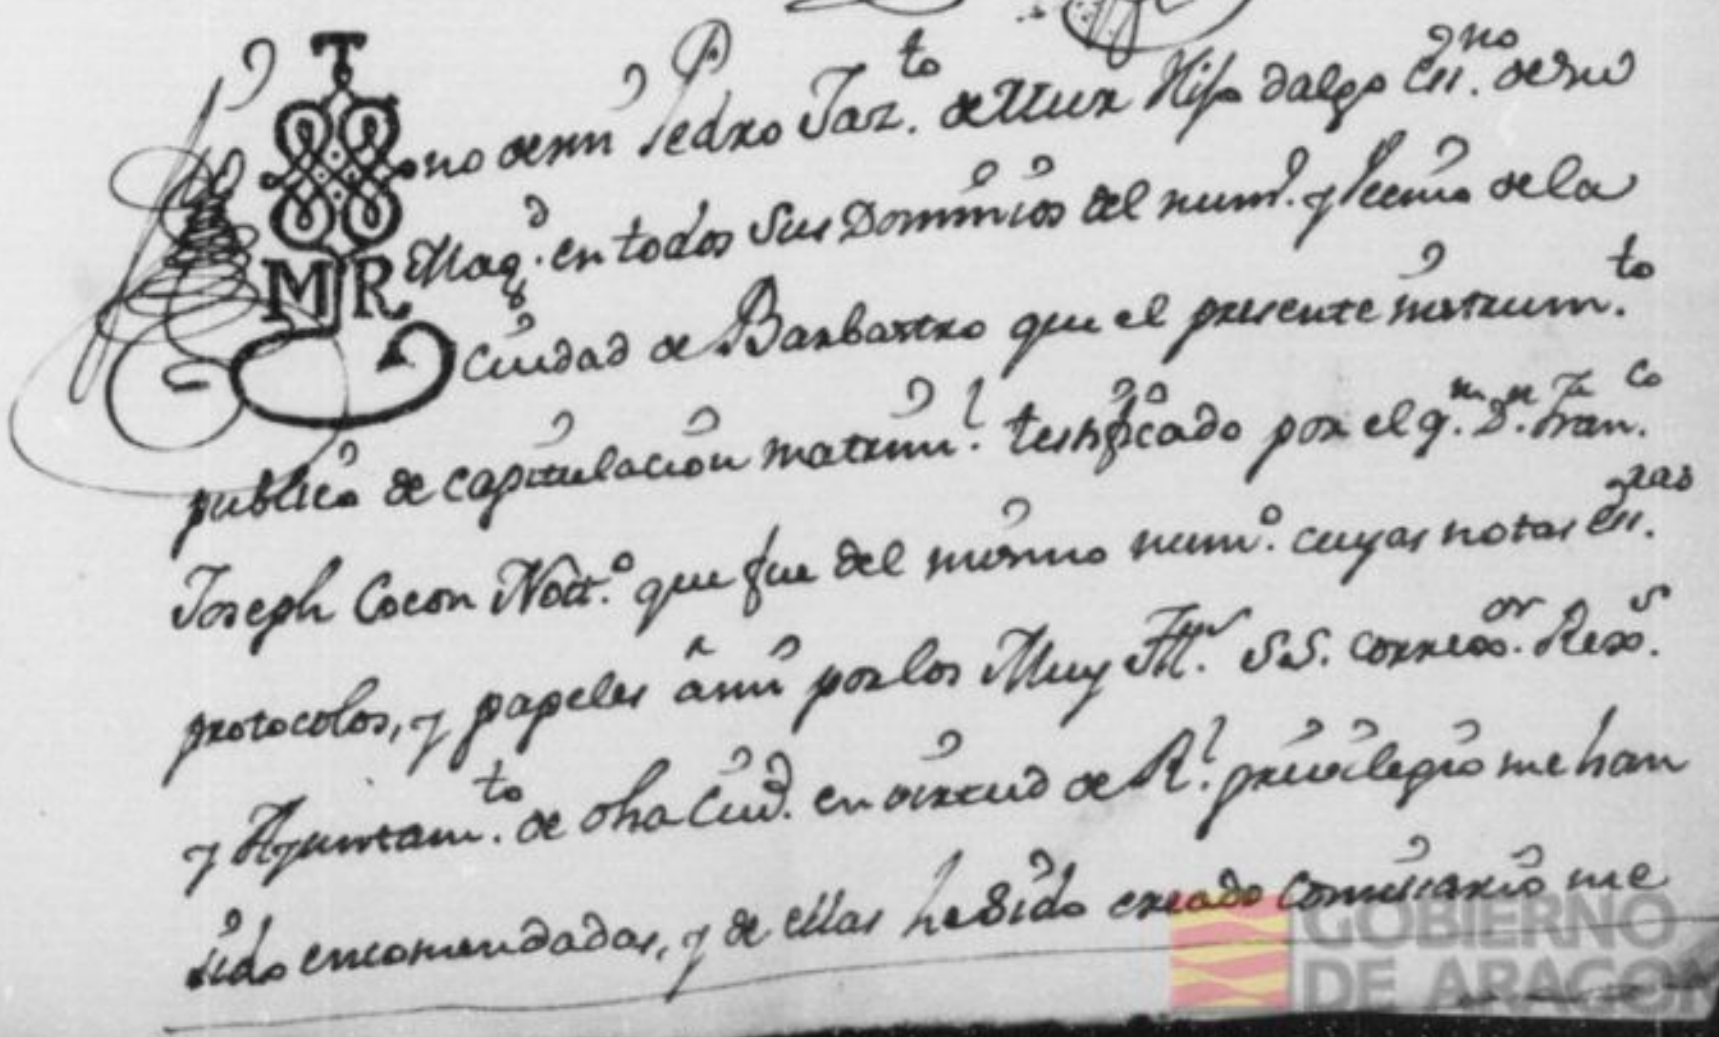 T
M R
no de mi Pedro Jaz.to de Mur Hijo dalgo Ess.no de su
Mag.d en todos sus Dominios del num.o y Vecino de la
Ciudad de Barbastro que el presente instrum.to
publico de capitulacion matrim.l testificado por el q.m D.n Fran.co
Joseph Cocon Nott.o que fue del mismo num.o cuyas notas Ess.ras
protocolos, y papeles â mi por los Muy Ill.es SS. Correg.or Rex.s
y Ayuntam.to de dha Ciud. en virtud de R.l privilegio me han
sido encomendadas, y de ellas he sido creado Comissario me
GOBIERNO
DE ARAGON